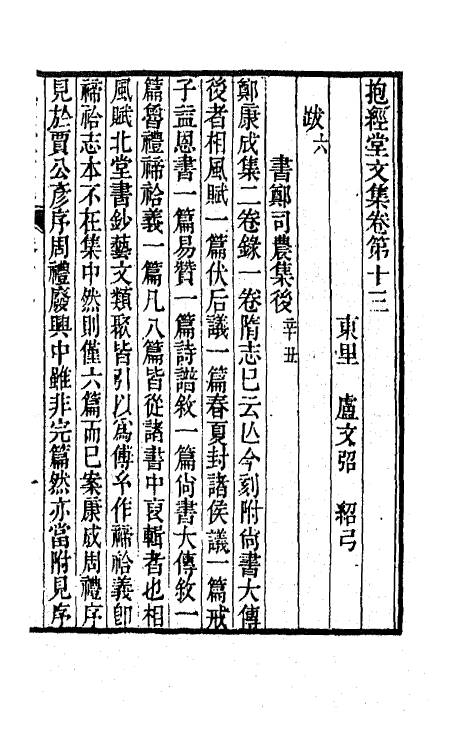 抱經堂文集卷第十三
東里　盧文弨　紹弓
跋六
書鄭司農集後辛丑
鄭康成集二卷錄一卷隋志已云亾今刻附尙書大傳
後者相風賦一篇伏后議一篇春夏封諸侯議一篇戒
子益恩書一篇易贊一篇詩譜敘一篇尙書大傳敘一
篇魯禮禘祫義一篇凡八篇皆從諸書中裒輯者也相
風賦北堂書鈔藝文類聚皆引以爲傅𤣥作禘祫義卽
禘祫志本不在集中然則僅六篇而已案康成周禮序
見於賈公彥序周禮廢興中雖非完篇然亦當附見序